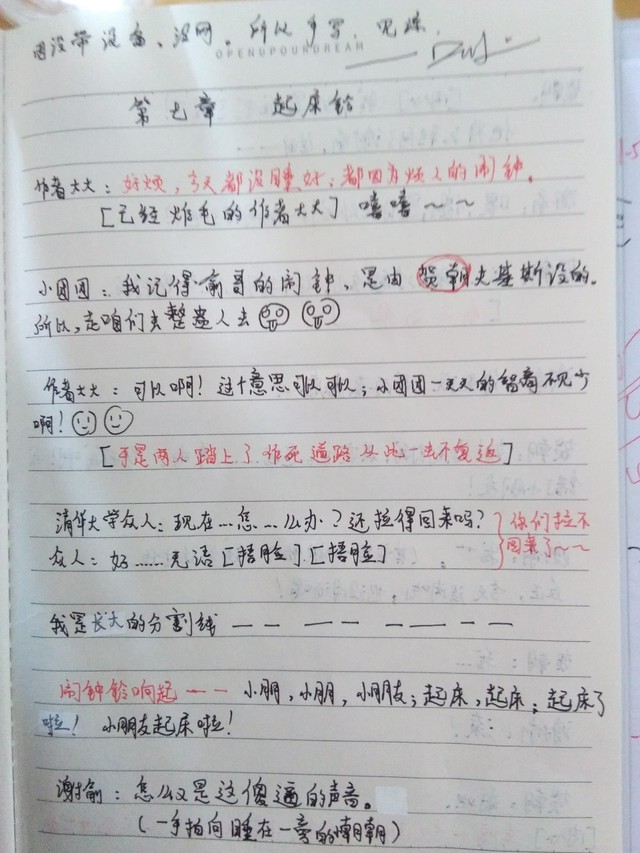 因没带设备、没网。所以手写，见谅.
OPENUPOUNDREAM
第七章 起床铃
作者大大：好烦，今天都没睡好；都因为烦人的闹钟。
[已经炸毛的作者大大] 嘻嘻～～
小团团：我记得俞哥的闹钟、是由贺朝夫基斯设的。
所以，走咱们去整蛊人去
作者大大：可以啊！这个意思可以可以；小团团一天天的智商不见少
啊！
[于是两人踏上了作死道路从此一去不复返]
清华大学众人：现在……怎……么办？还拉得回来吗？
你们拉不
回来了～～
众人：好……无语[捂脸][捂脸]
我是长大的分割线 — — — — — — —
闹钟铃响起 —— 小朋，小朋，小朋友；起床，起床；起床了
啦！小朋友起床啦！
谢俞：怎么又是这傻逼的声音。
（一手拍向睡在一旁的朝朝）